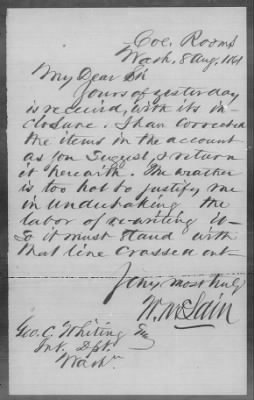 Col. Rooms
Wash. 8 Aug. 1861
My Dear Sir
Yours of yesterday
is received, with its in-
closure. I have corrected
the items in the account
as you suggest, & return
it herewith. The weather
is too hot to justify me
in undertaking the
labor of re-writing it—
so it must stand with
that line crossed out—
Yours, most truly
W. McLain
Geo. C. Whiting Esq
Int. Dpt.
Washn